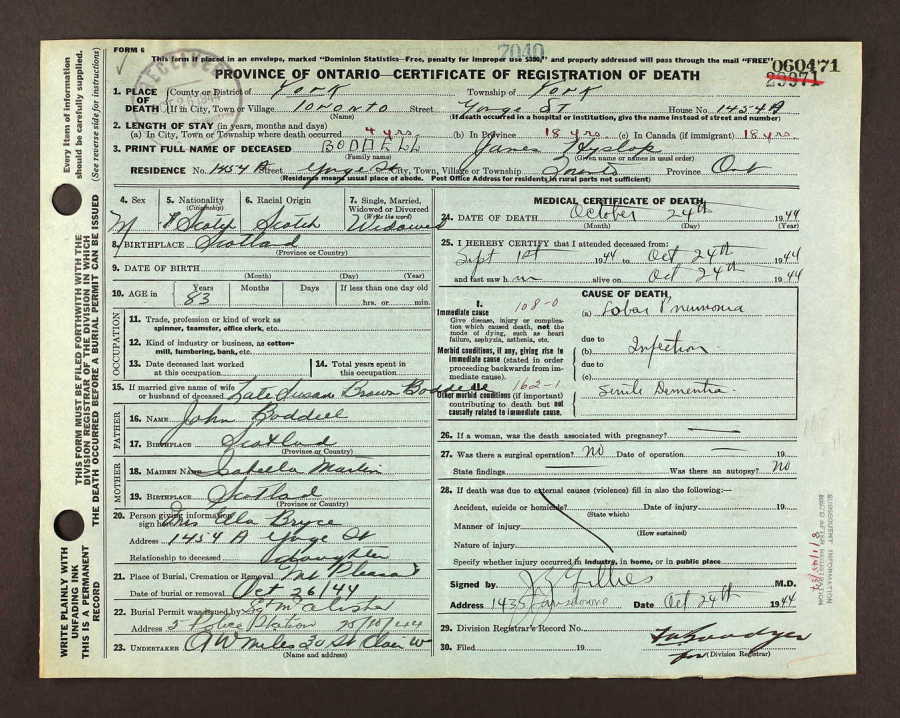 FORM 6
7040
This form if placed in an envelope, marked "Dominion Statistics—Free, penalty for improper use $300," and properly addressed will pass through the mail "FREE"
PROVINCE OF ONTARIO—CERTIFICATE OF REGISTRATION OF DEATH
060471
29971
RECEIVED
1. PLACE OF DEATH (County or District of York Township of York
(If in City, Town or Village Toronto Street Yonge St House No. 1454A
(Name) (If death occurred in a hospital or institution, give the name instead of street and number)
2. LENGTH OF STAY (in years, months and days)
(a) In City, Town or Township where death occurred 4 yrs (b) In Province 18 yrs (c) In Canada (if immigrant) 18 yrs
3. PRINT FULL NAME OF DECEASED BODDELL James Hyslop
(Family name) (Given name or names in usual order)
RESIDENCE No. 1454 A Street Yonge St City, Town, Village or Township Toronto Province Ont
(Residence means usual place of abode. Post Office Address for residents in rural parts not sufficient)
4. Sex M
5. Nationality (Citizenship) Scotch
6. Racial Origin Scotch
7. Single, Married, Widowed or Divorced (Write the word) Widowed
8. BIRTHPLACE Scotland
(Province or Country)
9. DATE OF BIRTH
(Month) (Day) (Year)
10. AGE in Years Months Days If less than one day old
83 hrs. or min.
OCCUPATION
11. Trade, profession or kind of work as spinner, teamster, office clerk, etc.
12. Kind of industry or business, as cotton-mill, lumbering, bank, etc.
13. Date deceased last worked at this occupation
14. Total years spent in this occupation
15. If married give name of wife or husband of deceased Late Susan Brown Boddell
FATHER
16. NAME John Boddell
17. BIRTHPLACE Scotland
(Province or Country)
MOTHER
18. MAIDEN NAME Isabella Martin
19. BIRTHPLACE Scotlad
(Province or Country)
20. Person giving information sign here Mrs Ella Bryce
Address 1454 A Yonge St
Relationship to deceased daughter
21. Place of Burial, Cremation or Removal Mt Pleasant
Date of burial or removal Oct 26/44
22. Burial Permit was issued by
Address 5 Police Station 25/10/44
23. UNDERTAKER A W Miles 30 St Clair W
(Name and address)
MEDICAL CERTIFICATE OF DEATH
24. DATE OF DEATH October 24th 1944
(Month) (Day) (Year)
25. I HEREBY CERTIFY that I attended deceased from:
Sept 1st 1944 to Oct 24th 1944
and last saw him alive on Oct 24th 1944
CAUSE OF DEATH
I.
Immediate cause 108-0
Give disease, injury or complication which caused death, not the mode of dying, such as heart failure, asphyxia, asthenia, etc.
(a) Lobar Pneumonia
due to
Morbid conditions, if any, giving rise to immediate cause (stated in order proceeding backwards from immediate cause).
(b) Infection
due to
(c)
II. 162-1
Other morbid conditions (if important) contributing to death but not causally related to immediate cause.
Senile Dementia
26. If a woman, was the death associated with pregnancy? —
27. Was there a surgical operation? NO Date of operation — 19
State findings — Was there an autopsy? No
28. If death was due to external causes (violence) fill in also the following:—
Accident, suicide or homicide?
(State which)
Manner of injury
(How sustained)
Nature of injury
Specify whether injury occurred in industry, in home, or in public place
Signed by J Z Gillies M.D.
Address 1435 Lansdowne Date Oct 24th 1944
29. Division Registrar's Record No.
30. Filed 19
for (Division Registrar)
Every item of information should be carefully supplied.
(See reverse side for instructions)
THIS FORM MUST BE FILED FORTHWITH WITH THE DIVISION REGISTRAR OF THE DIVISION IN WHICH THE DEATH OCCURRED BEFORE A BURIAL PERMIT CAN BE ISSUED
WRITE PLAINLY WITH UNFADING INK
THIS IS A PERMANENT RECORD